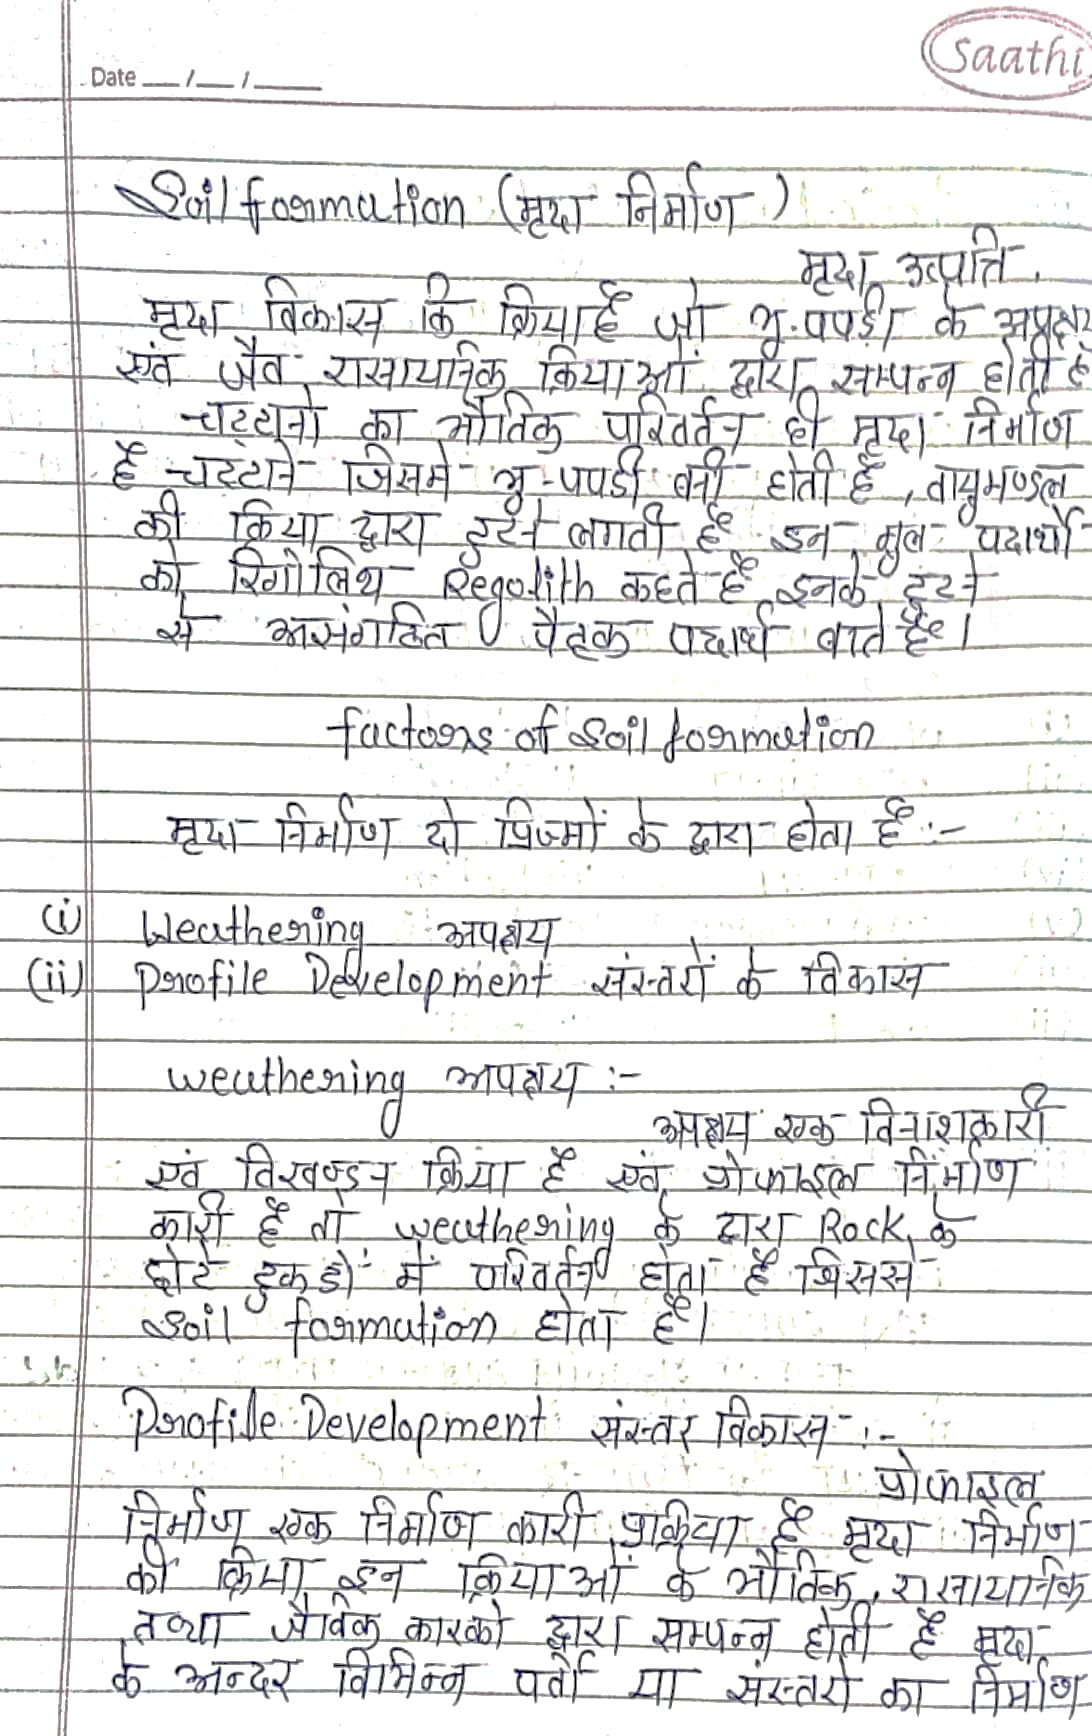 Saathi
Date __/__/____
Soil formation (मृदा निर्माण)
मृदा उत्पत्ति
मृदा विकास कि क्रिया है जो भू-पपडी के अपक्षय
एवं जैव रासायनिक क्रियाओं द्वारा सम्पन्न होती है
चट्टानो का भौतिक परिवर्तन ही मृदा निर्माण
है चट्टाने जिसमे भु-पपडी बनी होती है, वायुमण्डल
की क्रिया द्वारा टुटने लगती है इन मुल पदार्थो
को रिगोलिथ Regolith कहते है इनके टुटने
से असंगठित पैतृक पदार्थ बनते है।
factors of Soil formation
मृदा निर्माण दो के द्वारा होता है :-
(i) Weathering अपक्षय
(ii) Profile Development संस्तरों के विकास
weathering अपक्षय :-
अपक्षय एक विनाशकारी
एवं विखण्डन क्रिया है एवं प्रोफाइल निर्माण
कारी है तो weathering के द्वारा Rock के
छोटे टुकडो में परिवर्तन होता है जिससे
Soil formation होता है।
Profile Development संस्तर विकास :-
प्रोफाइल
निर्माण एक निर्माण कारी प्रक्रिया है मृदा निर्माण
की क्रिया इन क्रियाओं के भौतिक, रासायनिक
तथा जैविक कारको द्वारा सम्पन्न होती है मृदा
के अन्दर विभिन्न पर्तो या संस्तरो का निर्माण